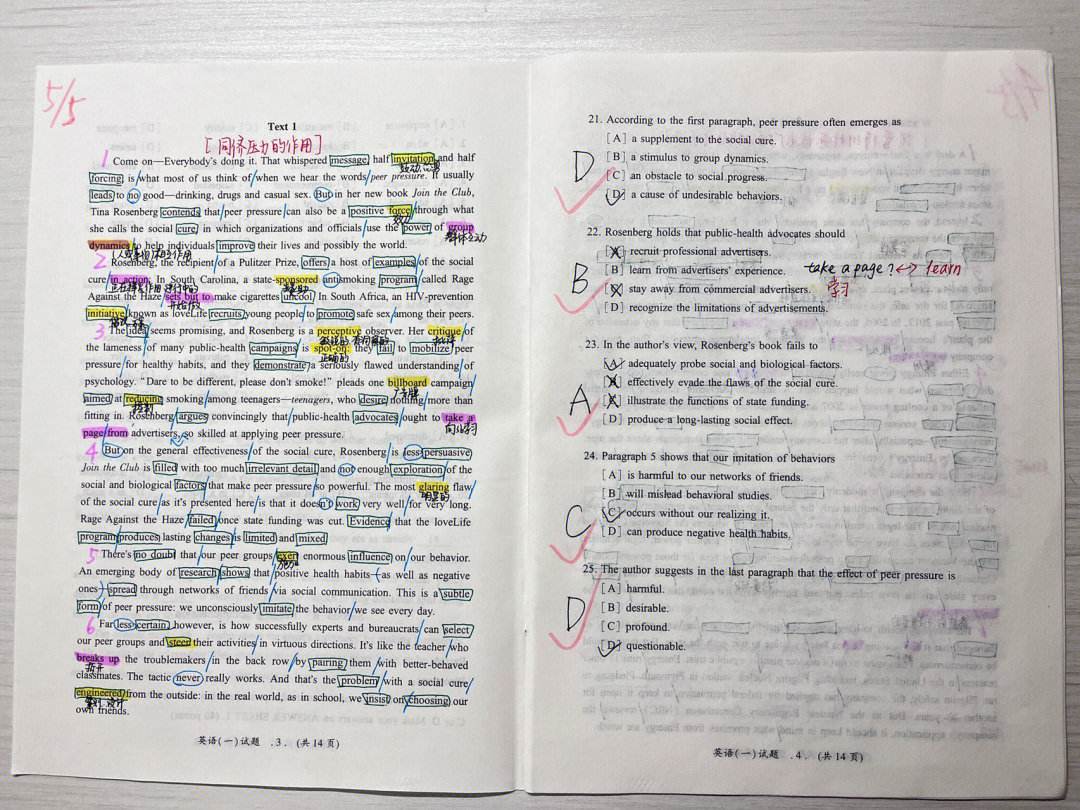 5/5
Text 1
[同侪压力的作用]
1 Come on—Everybody's doing it. That whispered message, half invitation and half
forcing, is what most of us think of when we hear the words peer pressure. It usually
leads to no good—drinking, drugs and casual sex. But in her new book Join the Club,
Tina Rosenberg contends that peer pressure can also be a positive force through what
效力
she calls the social cure, in which organizations and officials use the power of group
群体互动
dynamics to help individuals improve their lives and possibly the world.
2 Rosenberg, the recipient of a Pulitzer Prize, offers a host of examples of the social
cure in action: In South Carolina, a state-sponsored anti-smoking program called Rage
Against the Haze sets out to make cigarettes uncool. In South Africa, an HIV-prevention
开始做
initiative known as loveLife recruits young people to promote safe sex among their peers.
3 The idea seems promising, and Rosenberg is a perceptive observer. Her critique of
the lameness of many public-health campaigns is spot-on: they fail to mobilize peer
正确的
pressure for healthy habits, and they demonstrate a seriously flawed understanding of
psychology. "Dare to be different, please don't smoke!" pleads one billboard campaign
广告牌
aimed at reducing smoking among teenagers—teenagers, who desire nothing more than
fitting in. Rosenberg argues convincingly that public-health advocates ought to take a
向…学习
page from advertisers, so skilled at applying peer pressure.
4 But on the general effectiveness of the social cure, Rosenberg is less persuasive.
Join the Club is filled with too much irrelevant detail and not enough exploration of the
social and biological factors that make peer pressure so powerful. The most glaring flaw
明显的
of the social cure as it's presented here is that it doesn't work very well for very long.
Rage Against the Haze failed once state funding was cut. Evidence that the loveLife
program produces lasting changes is limited and mixed.
5 There's no doubt that our peer groups exert enormous influence on our behavior.
An emerging body of research shows that positive health habits—as well as negative
ones—spread through networks of friends via social communication. This is a subtle
form of peer pressure: we unconsciously imitate the behavior we see every day.
6 Far less certain, however, is how successfully experts and bureaucrats can select
our peer groups and steer their activities in virtuous directions. It's like the teacher who
breaks up the troublemakers in the back row by pairing them with better-behaved
拆开
classmates. The tactic never really works. And that's the problem with a social cure
engineered from the outside: in the real world, as in school, we insist on choosing our
own friends.
英语(一)试题 .3. (共14页)
21. According to the first paragraph, peer pressure often emerges as
[A] a supplement to the social cure.
D
[B] a stimulus to group dynamics.
[C] an obstacle to social progress.
[D] a cause of undesirable behaviors.
22. Rosenberg holds that public-health advocates should
[A] recruit professional advertisers.
B
[B] learn from advertisers' experience. take a page? ↔ learn
学习
[C] stay away from commercial advertisers.
[D] recognize the limitations of advertisements.
23. In the author's view, Rosenberg's book fails to
[A] adequately probe social and biological factors.
[B] effectively evade the flaws of the social cure.
A
[C] illustrate the functions of state funding.
[D] produce a long-lasting social effect.
24. Paragraph 5 shows that our imitation of behaviors
[A] is harmful to our networks of friends.
[B] will mislead behavioral studies.
C
[C] occurs without our realizing it.
[D] can produce negative health habits.
25. The author suggests in the last paragraph that the effect of peer pressure is
[A] harmful.
D
[B] desirable.
[C] profound.
[D] questionable.
英语(一)试题 .4. (共14页)